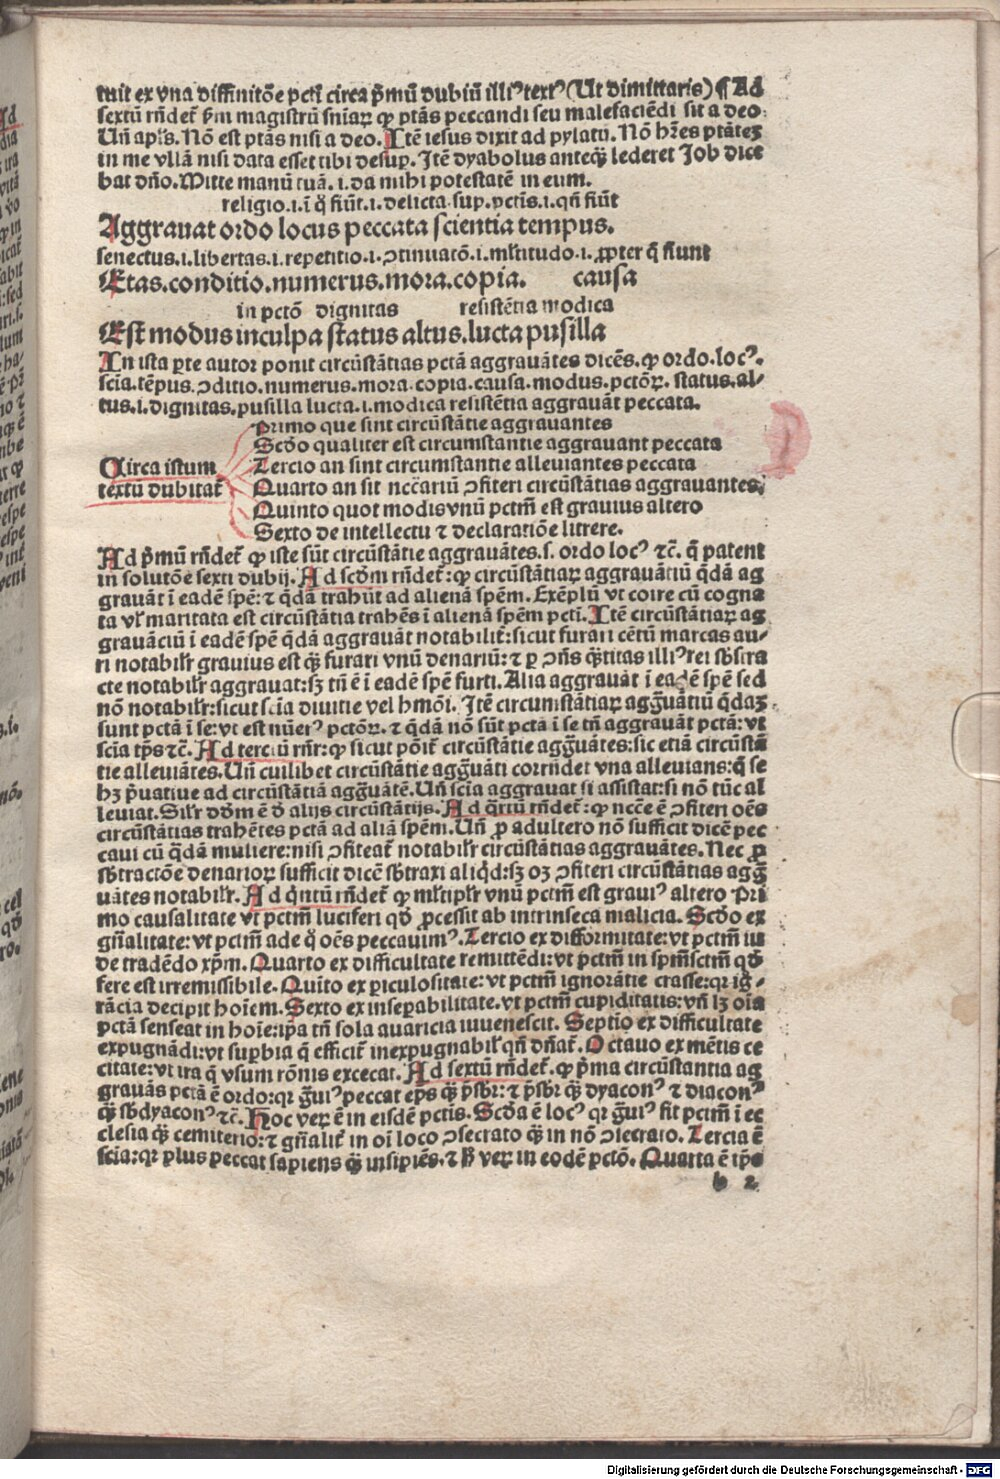 tuit ex vna diffinitõe pctī circa p̄mū dubiū illiꝰ textꝰ (Ut dimittaris) ¶ Ad
sextū rñdet̄ ꝓm magistrū sniaꝝ ꝙ ptās peccandi seu malefaciēdi sit a deo.
Uñ apl's. Nō est ptās nisi a deo. Itē iesus dixit ad pylatū. Nō hr̄es ptātez
in me vllā nisi data esset tibi desuꝑ. Itē dyabolus anteqꝫ lederet Job dice
bat dño. Mitte manū tuā. i. da mihi potestatē in eum.
religio.i.ī q̊ fiūt.i. delicta. sup. pctīs.i. qñ fiūt
Aggrauat ordo locus peccata scientia tempus.
senectus.i.libertas.i.repetitio.i.ↄtinuatō.i.ml'titudo.i.ꝓpter q̄ fiunt
Etas.conditio.numerus.mora.copia. causa
in pctō dignitas resistētia modica
Est modus in culpa status altus.lucta pusilla
In ista ꝑte autor ponit circūstātias pctā aggrauātes dicēs. ꝙ ordo.locꝰ.
scia.tēpus.ↄditio.numerus.mora.copia.causa.modus.pctōꝝ. status.al-
tus.i.dignitas.pusilla lucta.i.modica resistētia aggrauāt peccata.
Primo que sint circūstātie aggrauantes
Scdo qualiter est circumstantie aggrauant peccata
Circa istum
Tercio an sint circumstantie alleuiantes peccata
textū dubitat̄
Quarto an sit nccāriū ↄfiteri circūstātias aggrauantes.
Quinto quot modis vnū pctm̄ est grauius altero
Sexto de intellectu ⁊ declaratiōe litrere.
Ad p̄mū rñdet̄ ꝙ iste sūt circūstātie aggrauātes.s. ordo locꝰ ⁊c̄. q̄ patent
in solutōe sexti dubij. Ad scdm rñdet̄: ꝙ circūstātiaꝝ aggrauātiū q̄dā ag
grauāt ī eadē spē: ⁊ q̄dā trahūt ad alienā spēm. Exēplū vt coire cū cogna
ta vl' maritata est circūstātia trahēs ī alienā spēm pctī. Itē circūstātiaꝝ ag
grauāciū ī eadē spē q̄dā aggrauāt notabilit̄: sicut furari cētū marcas au-
ri notabilr̄ grauius est qꝫ furari vnū denariū: ⁊ ꝑ ↄñs qꝫtitas illiꝰ rei sbstra
cte notabilr̄ aggrauat: sꝫ tñ ē ī eadē spē furti. Alia aggrauāt ī eadē spē sed
nō notabilr̄: sicut scīa diuitie vel hmōi. Itē circumstātiaꝝ agḡuātiū q̄daꝫ
sunt pctā ī se: vt est nūerꝰ pctōꝝ. ⁊ q̄dā nō sūt pctā ī se tñ aggrauāt pctā: vt
scīa tp̄s ⁊c̄. Ad terciū rñr̄: ꝙ sicut pōit̄ circūstātie agḡuātes: sic etiā circūstā
tie alleuiātes. Uñ cuilibet circūstātie agḡuāti corrñdet vna alleuians: q̄ se
hꝫ p̄uatiue ad circūstātiā agḡuātē. Uñ scīa aggrauat si assistat: si nō tūc al
leuiat. Silr̄ dd̄m ē d̄ alijs circūstātijs. Ad q̄rtū rñdet̄: ꝙ ncē ē ↄfiteri oēs
circūstātias trahētes pctā ad aliā spēm. Uñ ꝓ adultero nō sufficit dicē pec
caui cū q̄dā muliere: nisi ↄfiteat̄ notabilr̄ circūstātias aggrauātes. Nec ꝓ
sbtractōe denarioꝝ sufficit dicē sbtraxi aliq̄d: sꝫ oꝫ ↄfiteri circūstātias agḡ
uātes notabilr̄. Ad q̄ntū rñdet̄ ꝙ ml'tiplr̄ vnū pctm̄ est grauiꝰ altero Pri
mo causalitate vt pctm̄ luciferi qd̄ ꝓcessit ab intrinseca malicia. Scdo ex
gñalitate: vt pctm̄ ade q̊ oēs peccauimꝰ. Tercio ex difformitate: vt pctm̄ iu
de tradēdo xp̄m. Quarto ex difficultate remittēdi: vt pctm̄ in spm̄sctm̄ qd̄
fere est irremissibile. Quīto ex ꝑiculositate: vt pctm̄ ignorātie crasse: qꝛ ig̊-
rācia decipit hoīem. Sexto ex inseꝑabilitate. vt pctm̄ cupiditatis: vñ lꝫ oīa
pctā senseat in hoīe: ip̄a tñ sola auaricia iuuenescit. Septīo ex difficultate
expugnādi: vt suꝑbia q̄ efficit̄ inexpugnabilr̄ qñ dñat̄. Octauo ex mētis ce
citate: vt ira q̄ vsum rōnis excecat. Ad sextū rñdet̄. ꝙ p̄ma circūstantia ag
grauās pctā ē ordo: qꝛ g̊uiꝰ peccat ep̄s qꝫ p̄sbr̄: ⁊ p̄sbr̄ qꝫ dyaconꝰ ⁊ diaconꝰ
qꝫ sbdyaconꝰ ⁊c̄. Hoc veꝝ ē in eisdē pctīs. Scd̄a ē locꝰ qꝛ g̊uiꝰ fit pctm̄ ī ec
clesia qꝫ cemiterio: ⁊ gñalit̄ in oī loco ↄsecrato qꝫ in nō ↄsecrato. Tercia ē
scīa: qꝛ plus peccat sapiens qꝫ insipiēs. ⁊ h̄ veꝝ in eodē pctō. Quarta ē tp̄s
b 2
Digitalisierung gefördert durch die Deutsche Forschungsgemeinschaft - DFG